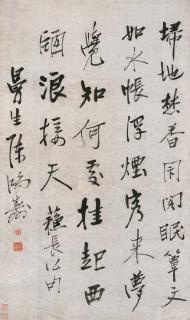 埽地焚香閉閣眠簟文
如水帳浮煙客來夢
覺知何處挂起西
窗浪接天 蘇長公句
曼生陳鴻壽